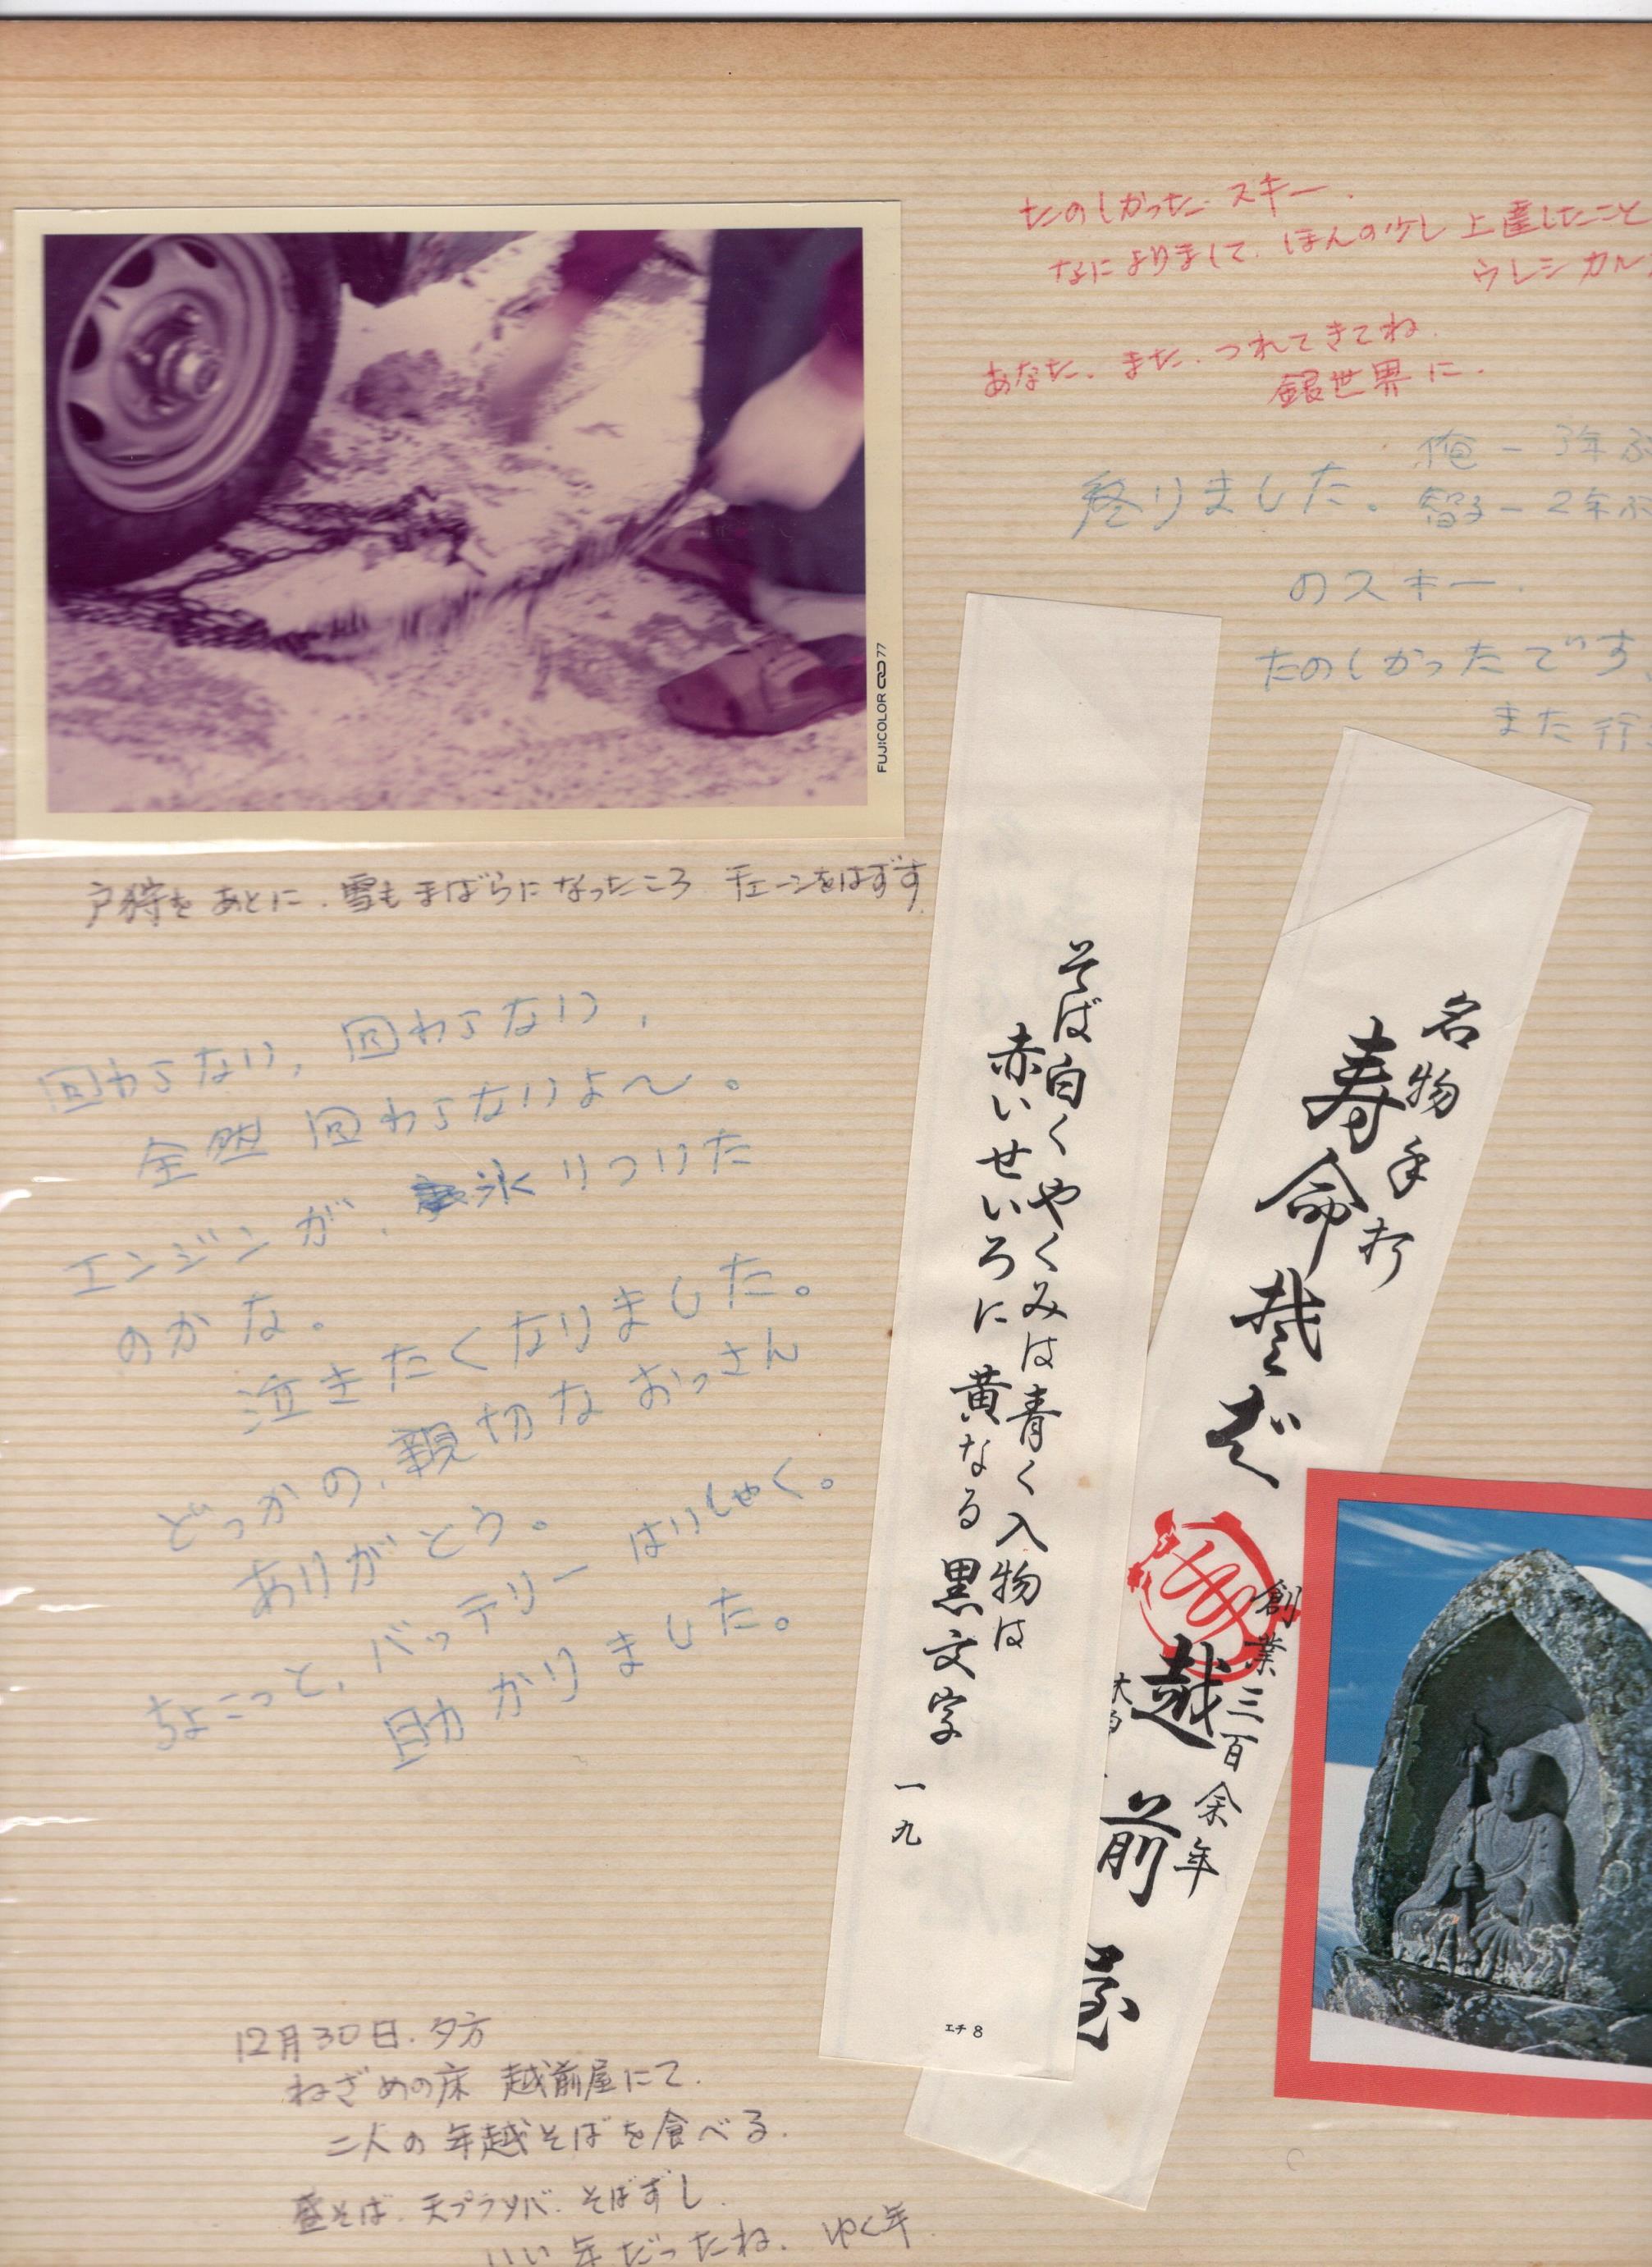 たのしかった. スキー.
なによりまして. ほんの少し 上達したこと
ウレシカル
あなた. また. つれてきてね.
銀世界に.
俺ー3年ぶ
終りました。 智子ー2年ぶ
のスキー.
たのしかったです.
また行
FUJICOLOR 77
戸狩をあとに. 雪もまばらになったころ チェーンをはずす.
回わらない, 回わらない,
全然 回わらないよ〜。
エンジンが, 氷りつけた
のかな。
泣きたくなりました。
どっかの, 親切なおっさん
ありがとう。
ちょこっと, バッテリー はいしゃく。
助かりました。
そば白くやくみは青く入物は
赤いせいろに黄なる黒文字
一九
エチ8
名物手打
寿命そば
創業三百余年
越前屋
12月30日. 夕方
ねざめの床 越前屋にて.
二人の年越そばを食べる.
盛そば. 天プラソバ. そばずし.
いい年だったね. ゆく年.